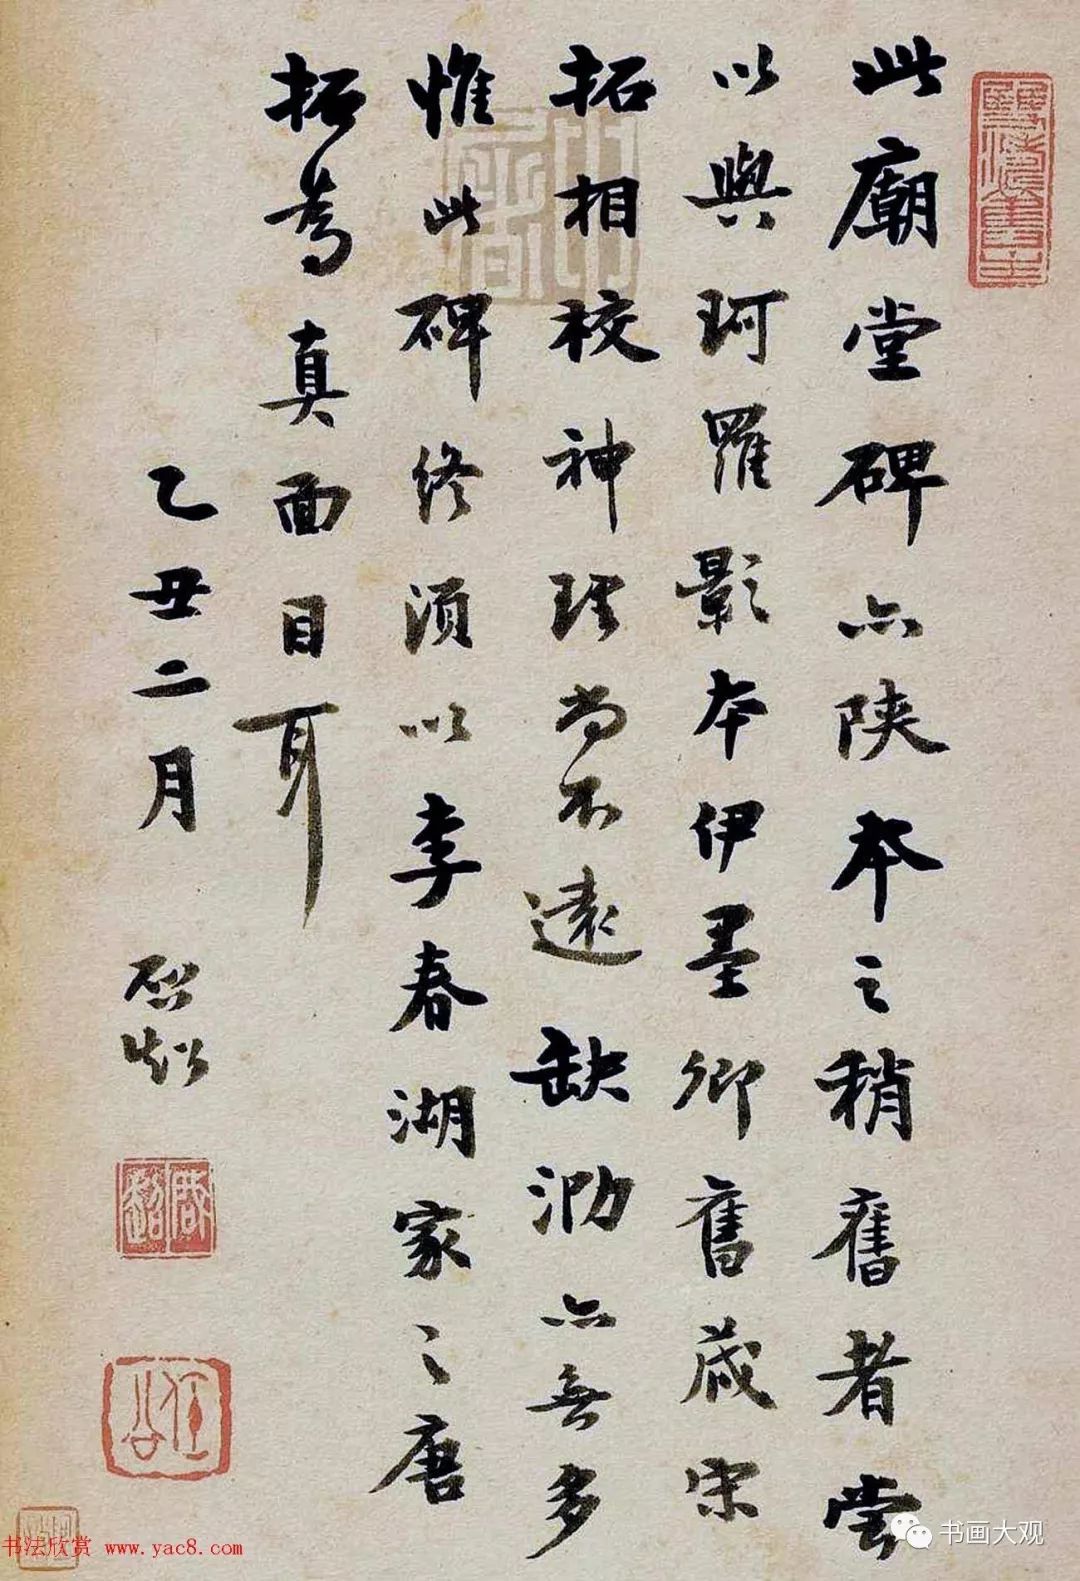 此廟堂碑亦陝本之稍舊者嘗
以與珂羅影本伊墨卿舊藏宋
拓相校神理尚不遠缺泐亦無多
惟此碑終須以李春湖家之唐
拓為真面目耳
乙丑二月 啟超
啟超
任公
书画大观
书法欣赏 www.yac8.com